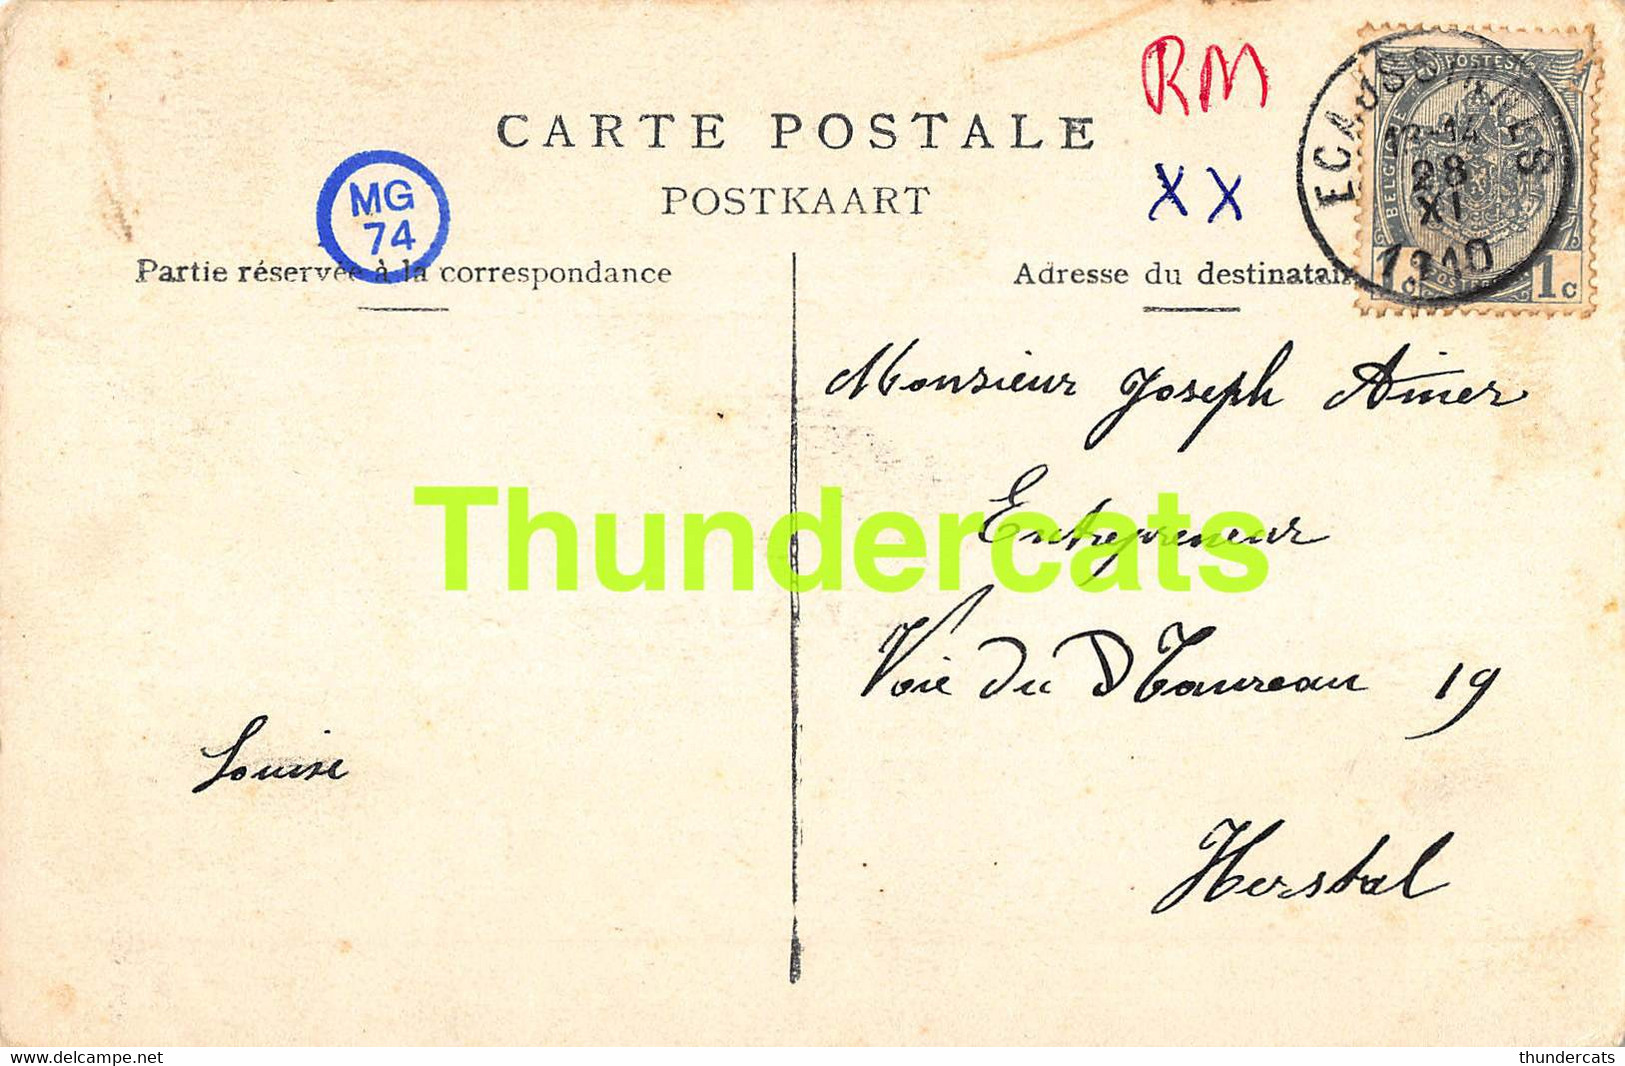 CARTE POSTALE
POSTKAART
RM
XX
MG
74
Partie réservée à la correspondance
Adresse du destinatai
POSTES
BELGIQUE
1c
12-14
28
XI
1910
Monsieur Joseph Aimer
Entrepreneur
Voie du
19
Herstal
Louise
Thundercats
www.delcampe.net
thundercats